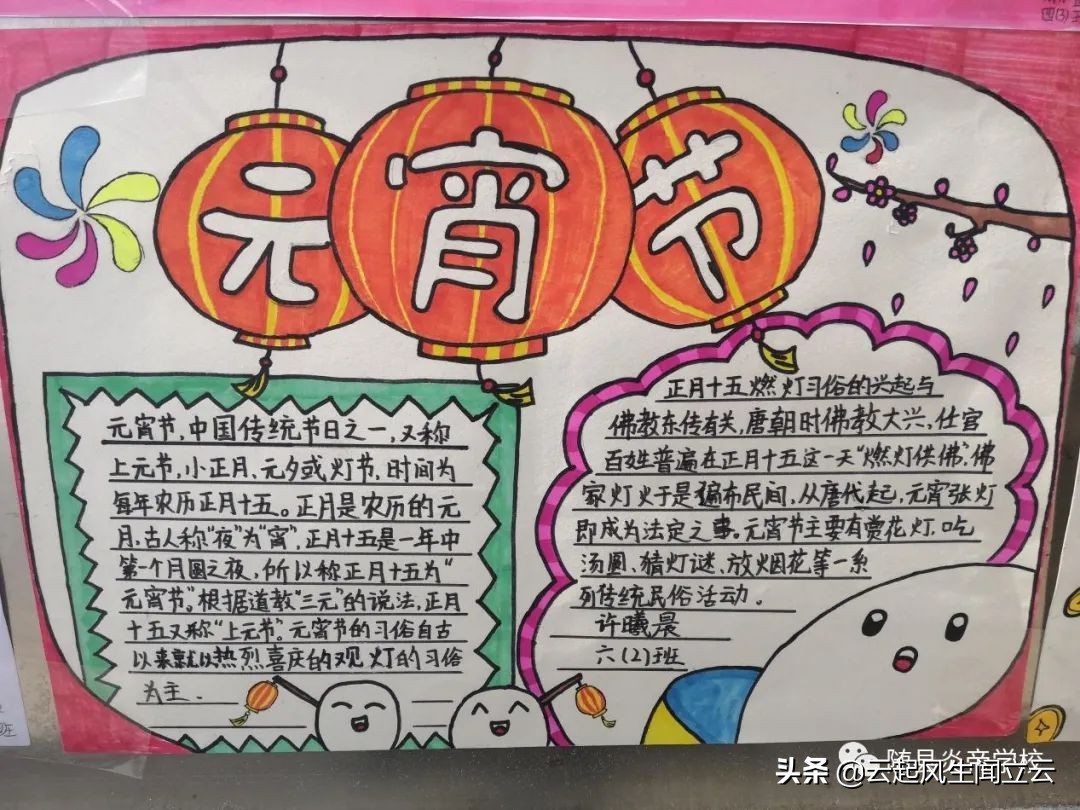 元宵节
元宵节,中国传统节日之一,又称
上元节,小正月、元夕或灯节,时间为
每年农历正月十五。正月是农历的元
月,古人称"夜"为"宵",正月十五是一年中
第一个月圆之夜,所以称正月十五为"
元宵节"。根据道教"三元"的说法,正月
十五又称"上元节"。元宵节的习俗自古
以来就以热烈喜庆的观灯的习俗
为主.
正月十五燃灯习俗的兴起与
佛教东传有关,唐朝时佛教大兴,仕官
百姓普遍在正月十五这一天"燃灯供佛",佛
家灯火于是遍布民间,从唐代起,元宵张灯
即成为法定之事。元宵节主要有赏花灯、吃
汤圆、猜灯谜、放烟花等一系
列传统民俗活动.
许曦晨
六(2)班
随县炎帝学校
头条 @云起风生闻立云
班